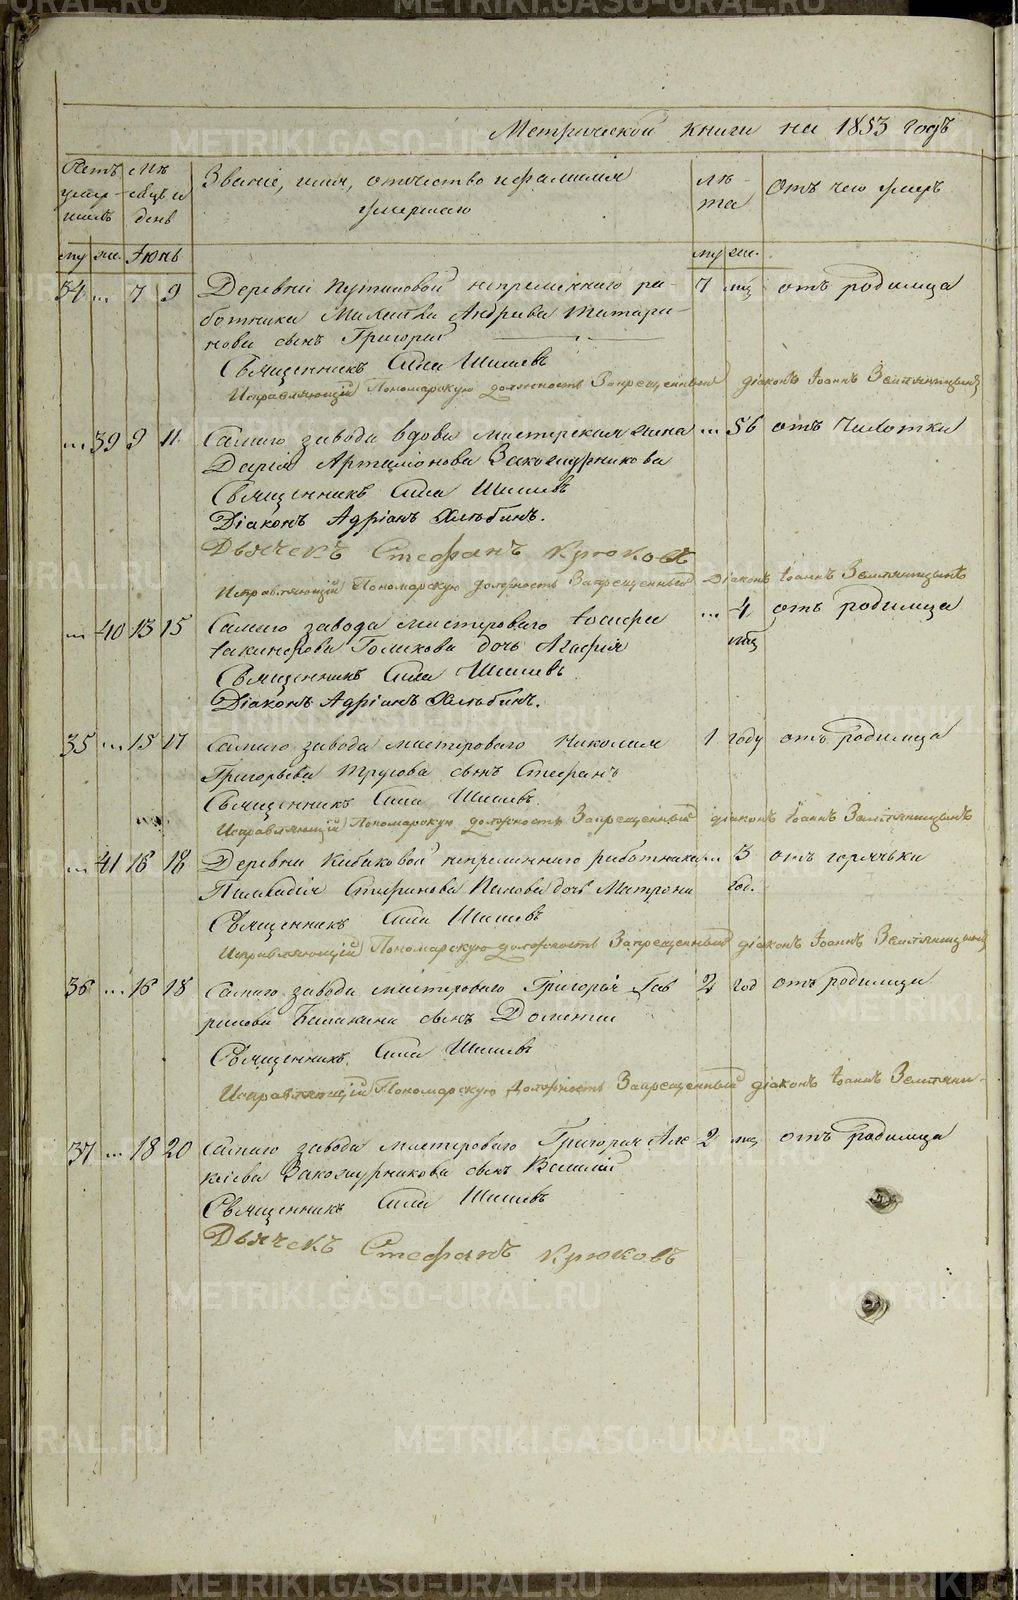 Метрической книги на 1853 годъ
Счетъ умершихъ
Мѣсяцъ и день
Званіе, имя, отчество и фамилия умершаго
лѣта
Отъ чего умеръ
му же. Іюнь му же.
34 ... 7 9 Деревни Путиловой непременнаго ра- 7 мц отъ родимца
ботника Андрѣева Татари-
нова сынъ Григорій
Священникъ Сила Шишевъ
Исправляющій Пономарскую должность Запрещенный діаконъ Іоаннъ Земляницынъ
... 39 9 11 Самаго завода вдова мастерская жена ... 56 отъ Чихотки
Дарія Артамонова Закожурникова
Священникъ Сила Шишевъ
Діаконъ Адріанъ Хлѣбинъ.
Дьячекъ Стефанъ Крюковъ
Исправляющій Пономарскую должность Запрещенный Діаконъ Іоаннъ Земляницынъ
... 40 13 15 Самаго завода мастероваго Іосифа ... 4 отъ родимца
Іакинфова Голикова дочь Агафія мц
Священникъ Сила Шишевъ
Діаконъ Адріанъ Хлѣбинъ.
35 ... 15 17 Самаго завода мастероваго Николая 1 году отъ родимца
Григорьева Трусова сынъ Стефанъ
Священникъ Сила Шишевъ.
Исправляющій Пономарскую должность Запрещенный діаконъ Іоаннъ Земляницынъ
... 41 16 18 Деревни Кабаковой непременнаго работника ... 3 отъ горячьки
Стефанова Панова дочь Матрона год.
Священникъ Сила Шишевъ
Исправляющій Пономарскую должность Запрещенный діаконъ Іоаннъ Земляницынъ
36 ... 16 18 Самаго завода мастероваго Григорія Гав 2 год отъ родимца
рилова Балакина сынъ
Священникъ Сила Шишевъ
Исправляющій Пономарскую Должность Запрещенный діаконъ Іоаннъ Земляни-
37 ... 18 20 Самаго завода мастероваго Григорія Але 2 мц отъ родимца
ксіева Закожурникова сынъ Василій
Священникъ Сила Шишевъ
Дьячекъ Стефанъ Крюковъ
METRIKI.GASO-URAL.RU